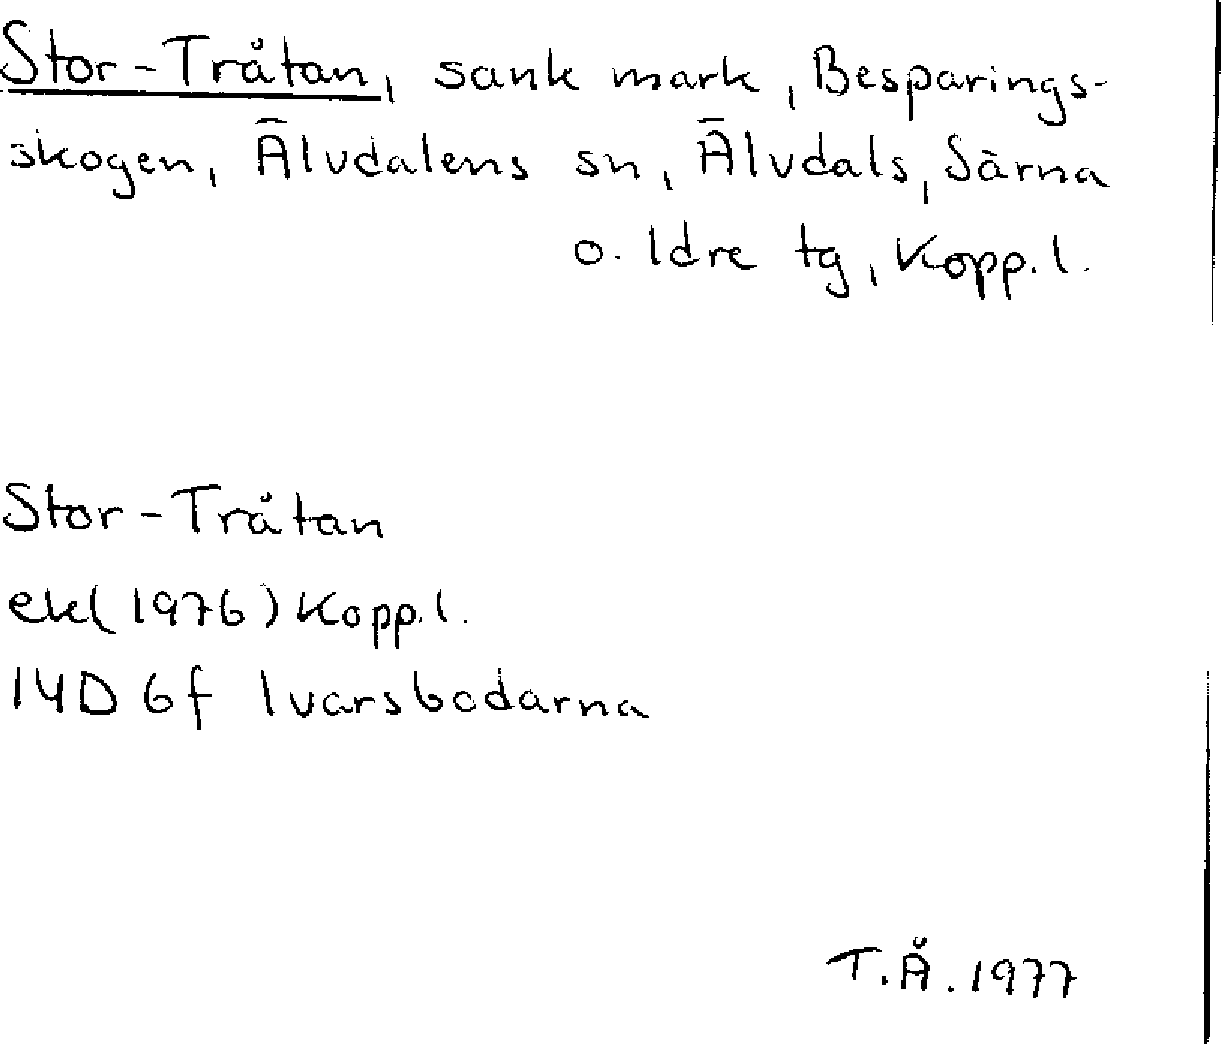 Stor-Tråtan, sank mark, Besparings-
skogen, Älvdalens sn, Älvdals, Särna
o. Idre tg, Kopp. l.
Stor-Tråtan
ek(1976) Kopp. l.
14D 6f Ivarsbodarna
T.Å. 1977